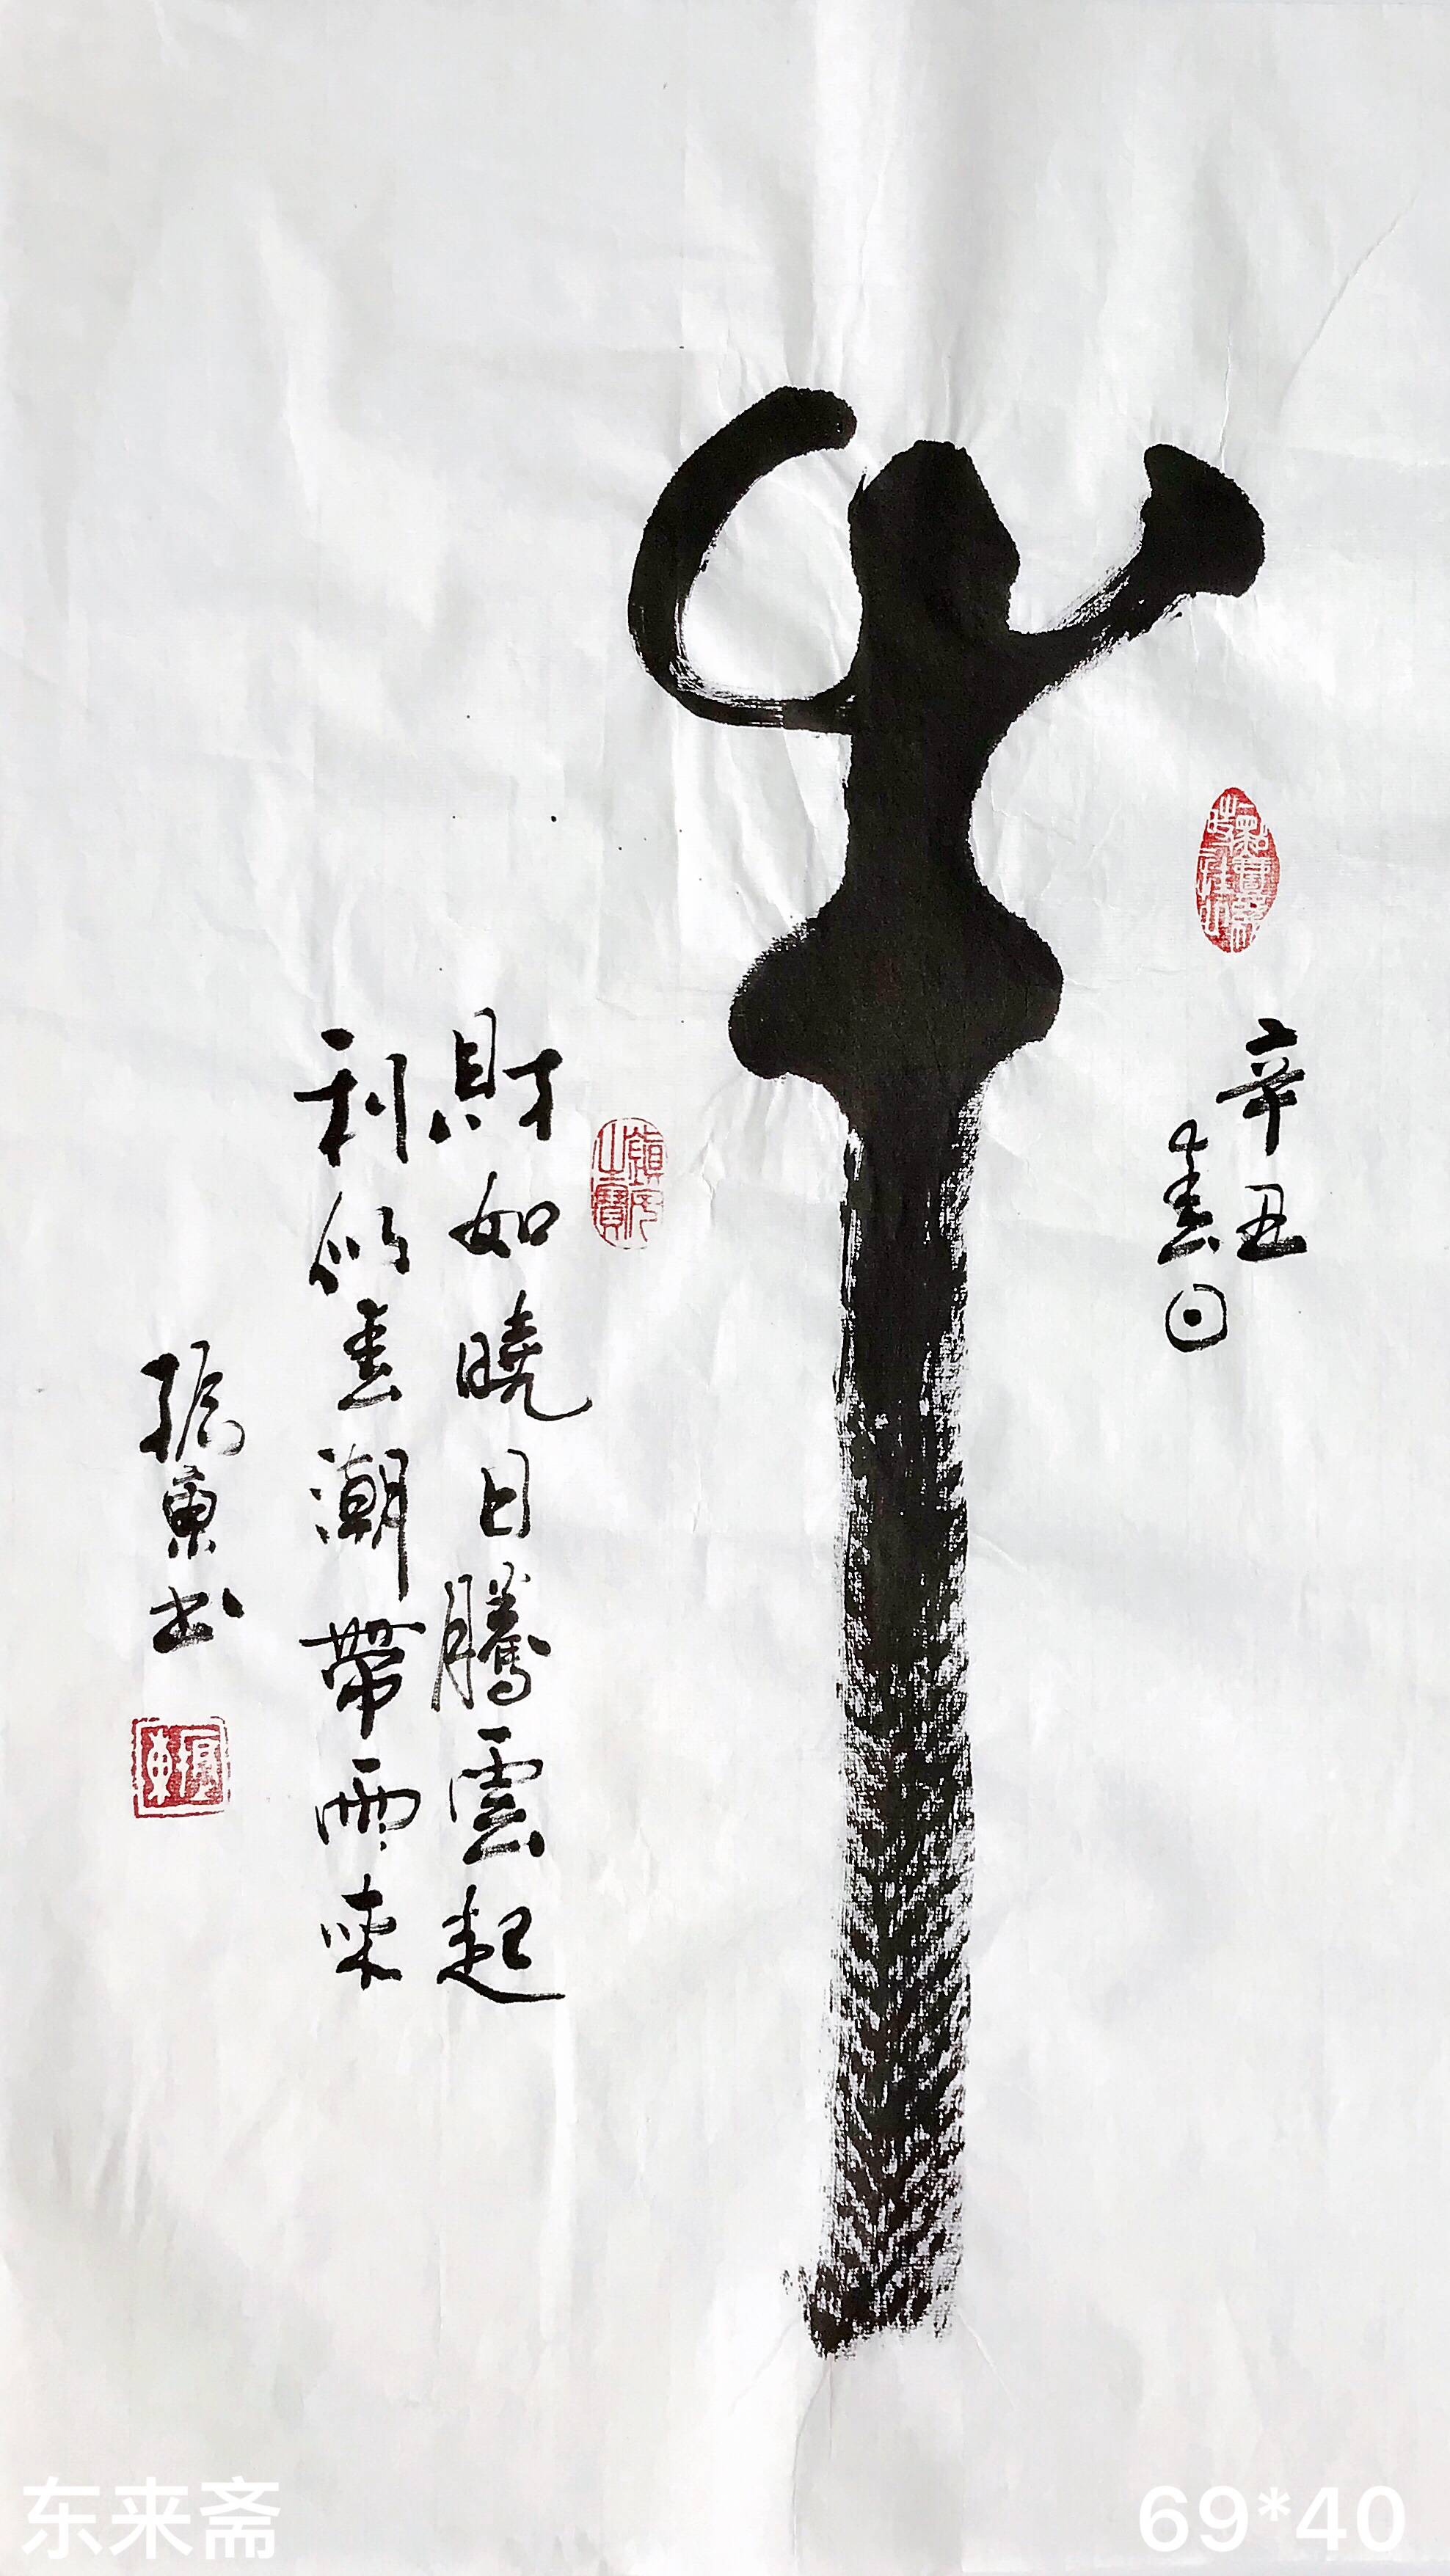 辛丑
春日
財如曉日騰雲起
利似春潮帶雨來
張東书
东来斋
69*40